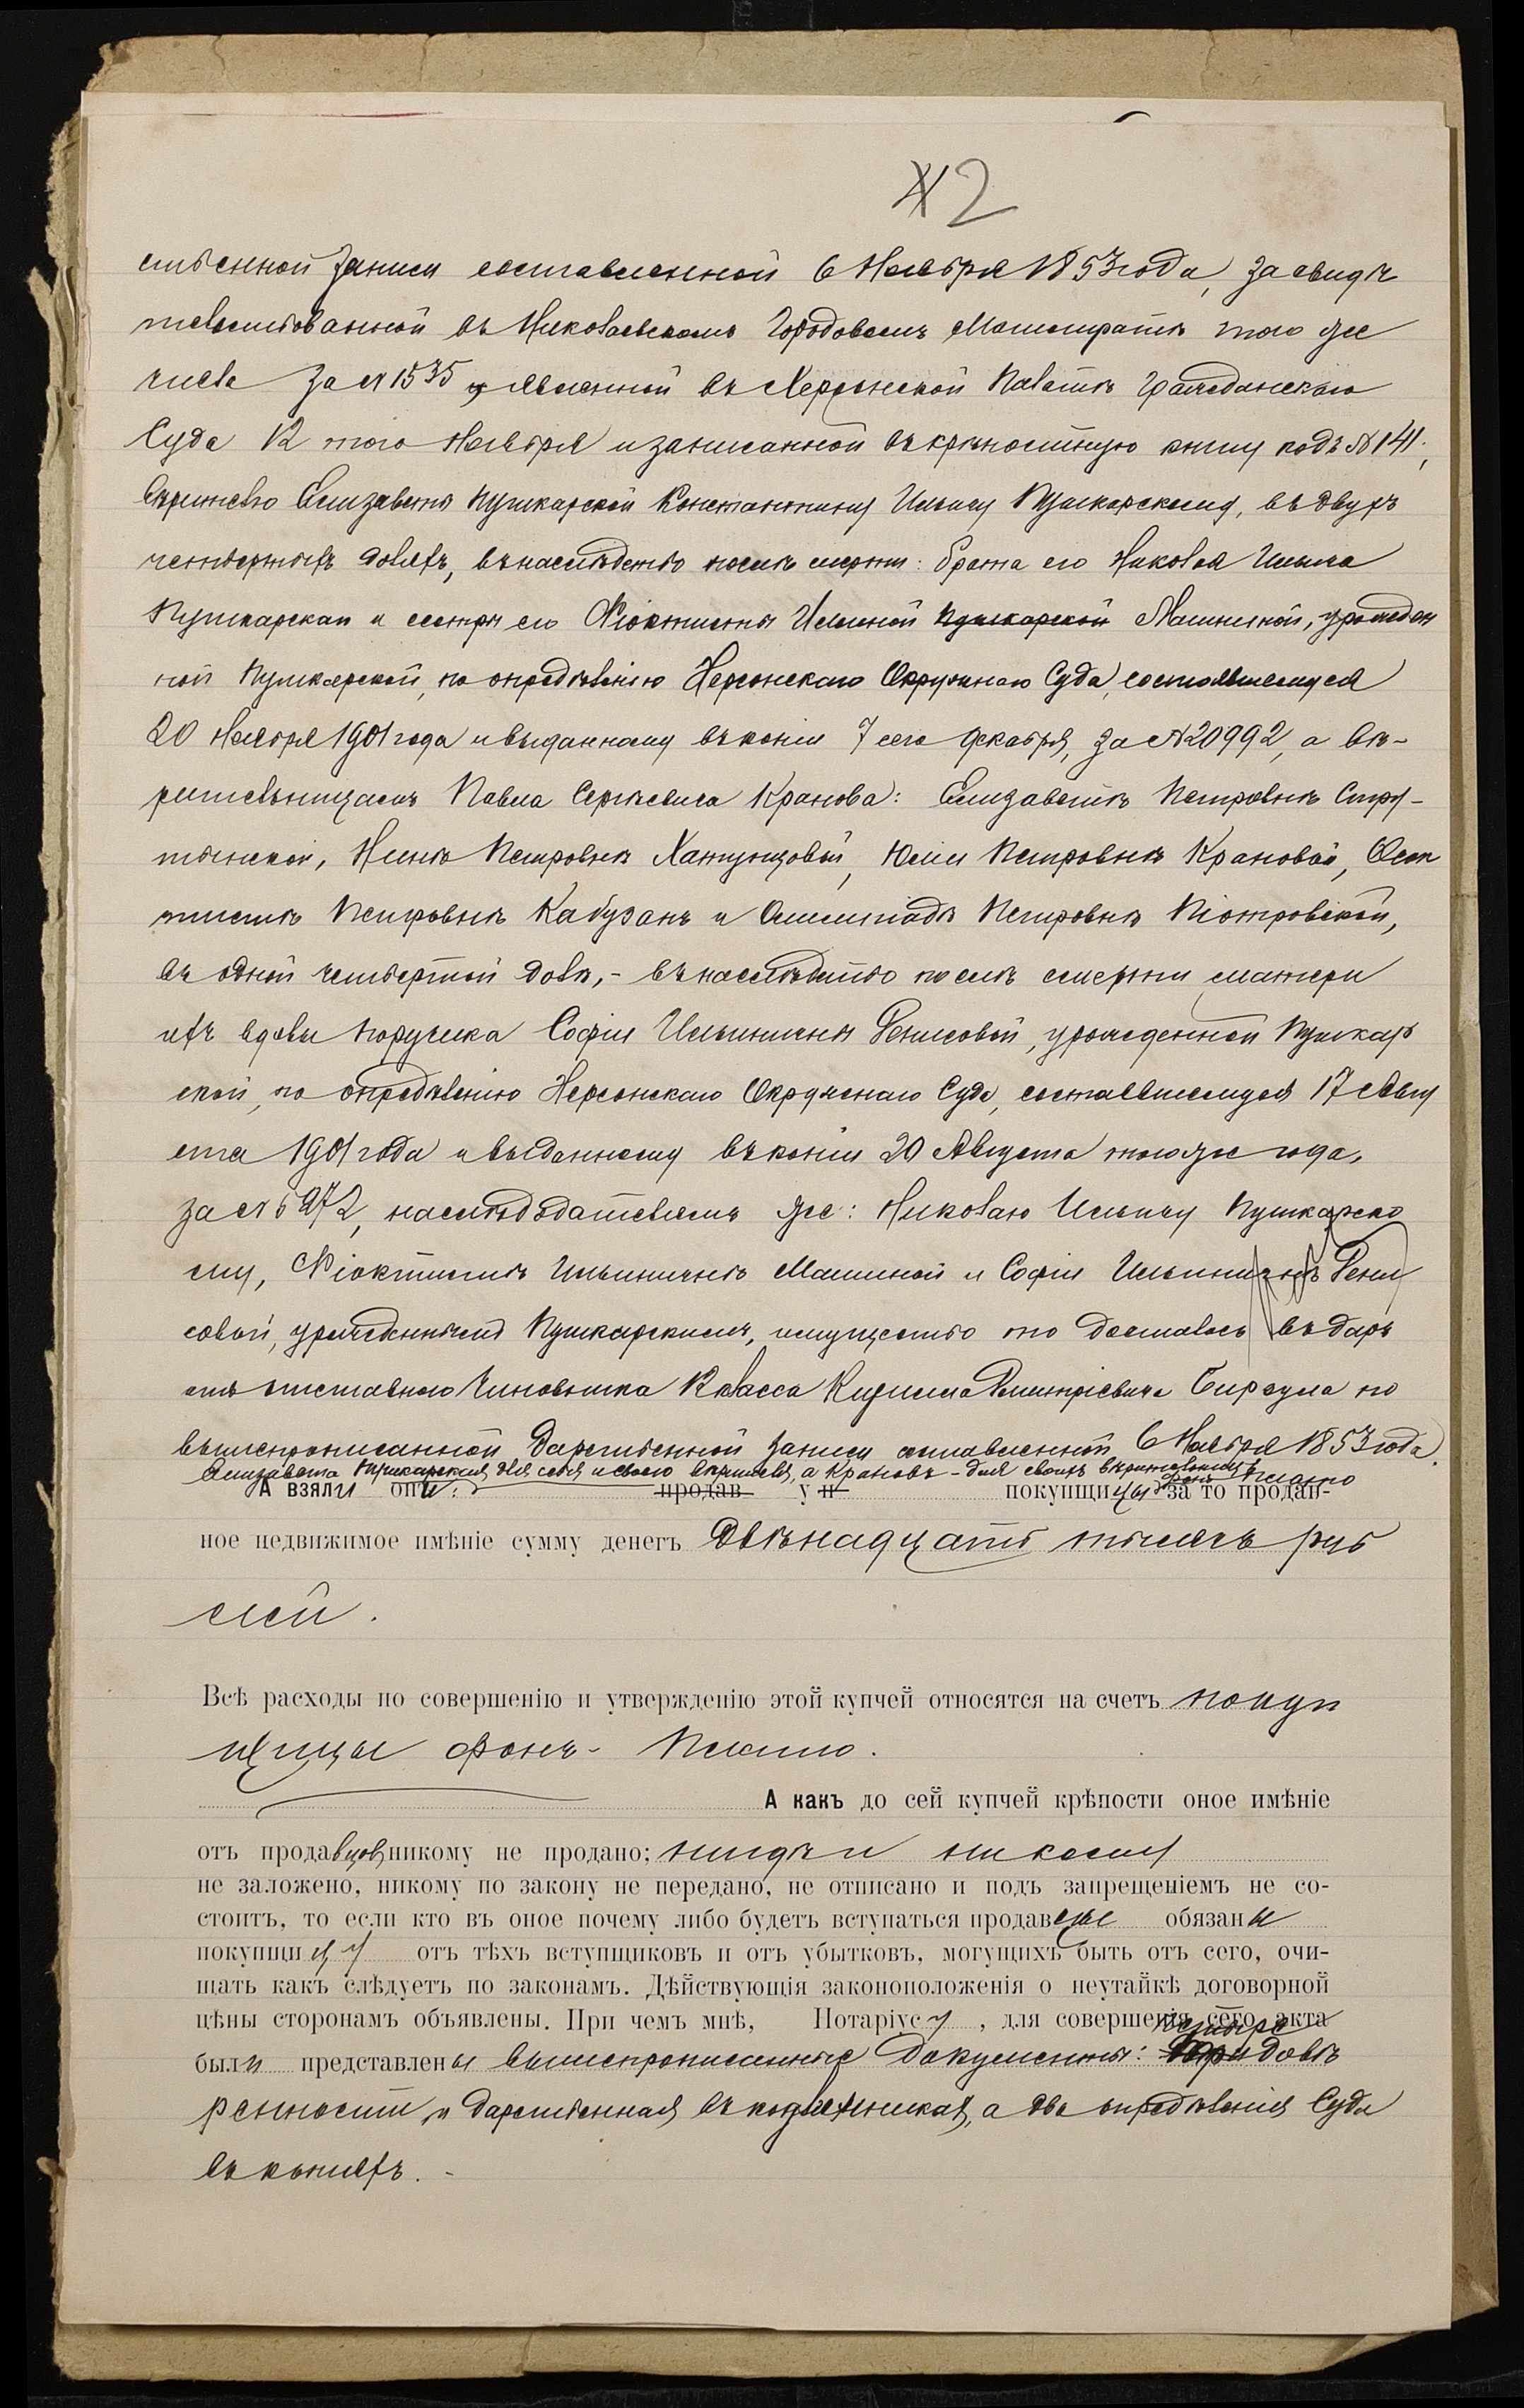 2
ственной записи составленной 6 Ноября 1853 года, засвидѣ
тельствованной въ Николаевскомъ Городовомъ Магистратѣ того же
числа за № 1535 и явленной въ Херсонской Палатѣ Гражданскаго
Суда 12 того Ноября и записанной въ крѣпостную книгу подъ № 141;
вѣрителю Елизаветы Пушкарской Константину Ильичу Пушкарскому, въ двухъ
четвертыхъ доляхъ, въ наслѣдство послѣ смерти: брата его Николая Ильича
Пушкарскаго и сестры его Ѳіоктисты Ильиной Пушкарской Машиной, урожден
ной Пушкарской, по опредѣленію Херсонскаго Окружнаго Суда, состоявшемуся
20 Ноября 1901 года и выданному въ копіи 7 сего Декабря, за № 20992, а вѣ-
рительницамъ Павла Сергѣевича Кранова: Елизаветѣ Петровнѣ Стру-
тынской, Нинѣ Петровнѣ Ханжуговой, Юліи Петровнѣ Крановой, Ѳеок
тистѣ Петровнѣ Кабузанъ и Олимпіадѣ Петровнѣ Піотровской,
въ одной четвертой долѣ, - въ наслѣдство послѣ смерти матери
ихъ вдовы поручика Софіи Ильиничны Денисовой, урожденной Пушкар
ской, по опредѣленію Херсонскаго Окружнаго Суда, состоявшемуся 17 Авгу
ста 1901 года и выданному въ копіи 20 Августа того же года,
за № 5972, наслѣдодателямъ же: Николаю Ильичу Пушкарско
му, Ѳіоктистѣ Ильиничнѣ Машиной и Софіи Ильиничнѣ Дени
совой, урожденнымъ Пушкарскимъ, имущество то досталось въ даръ
отъ отставного Чиновника Класса Кирилла Дмитріевича Бирзула по
вышепрописанной дарственной записи составленной 6 Ноября 1853 года.
Елизавета Пушкарская для себя и своего вѣрителя, а Крановъ - для своихъ вѣрительницъ
А взяли они: продав у н покупщицы фонъ Плато за то продан-
ное недвижимое имѣніе сумму денегъ двѣнадцать тысячъ руб
лей.
Всѣ расходы по совершенію и утвержденію этой купчей относятся на счетъ покуп
щицы фонъ-Плато.
А какъ до сей купчей крѣпости оное имѣніе
отъ продавцовъ никому не продано; нигдѣ и никому
не заложено, никому по закону не передано, не отписано и подъ запрещеніемъ не со-
стоитъ, то если кто въ оное почему либо будетъ вступаться продавцы обязаны
покупщицу отъ тѣхъ вступщиковъ и отъ убытковъ, могущихъ быть отъ сего, очи-
щать какъ слѣдуетъ по законамъ. Дѣйствующія законоположенія о неутайкѣ договорной
цѣны сторонамъ объявлены. При чемъ мнѣ, Нотаріусу, для совершенія сего акта
были представлены вышепрописанные документы: четыре довѣ
ренности и дарственная въ подлинникахъ, а два опредѣленія Суда
въ копіяхъ. -